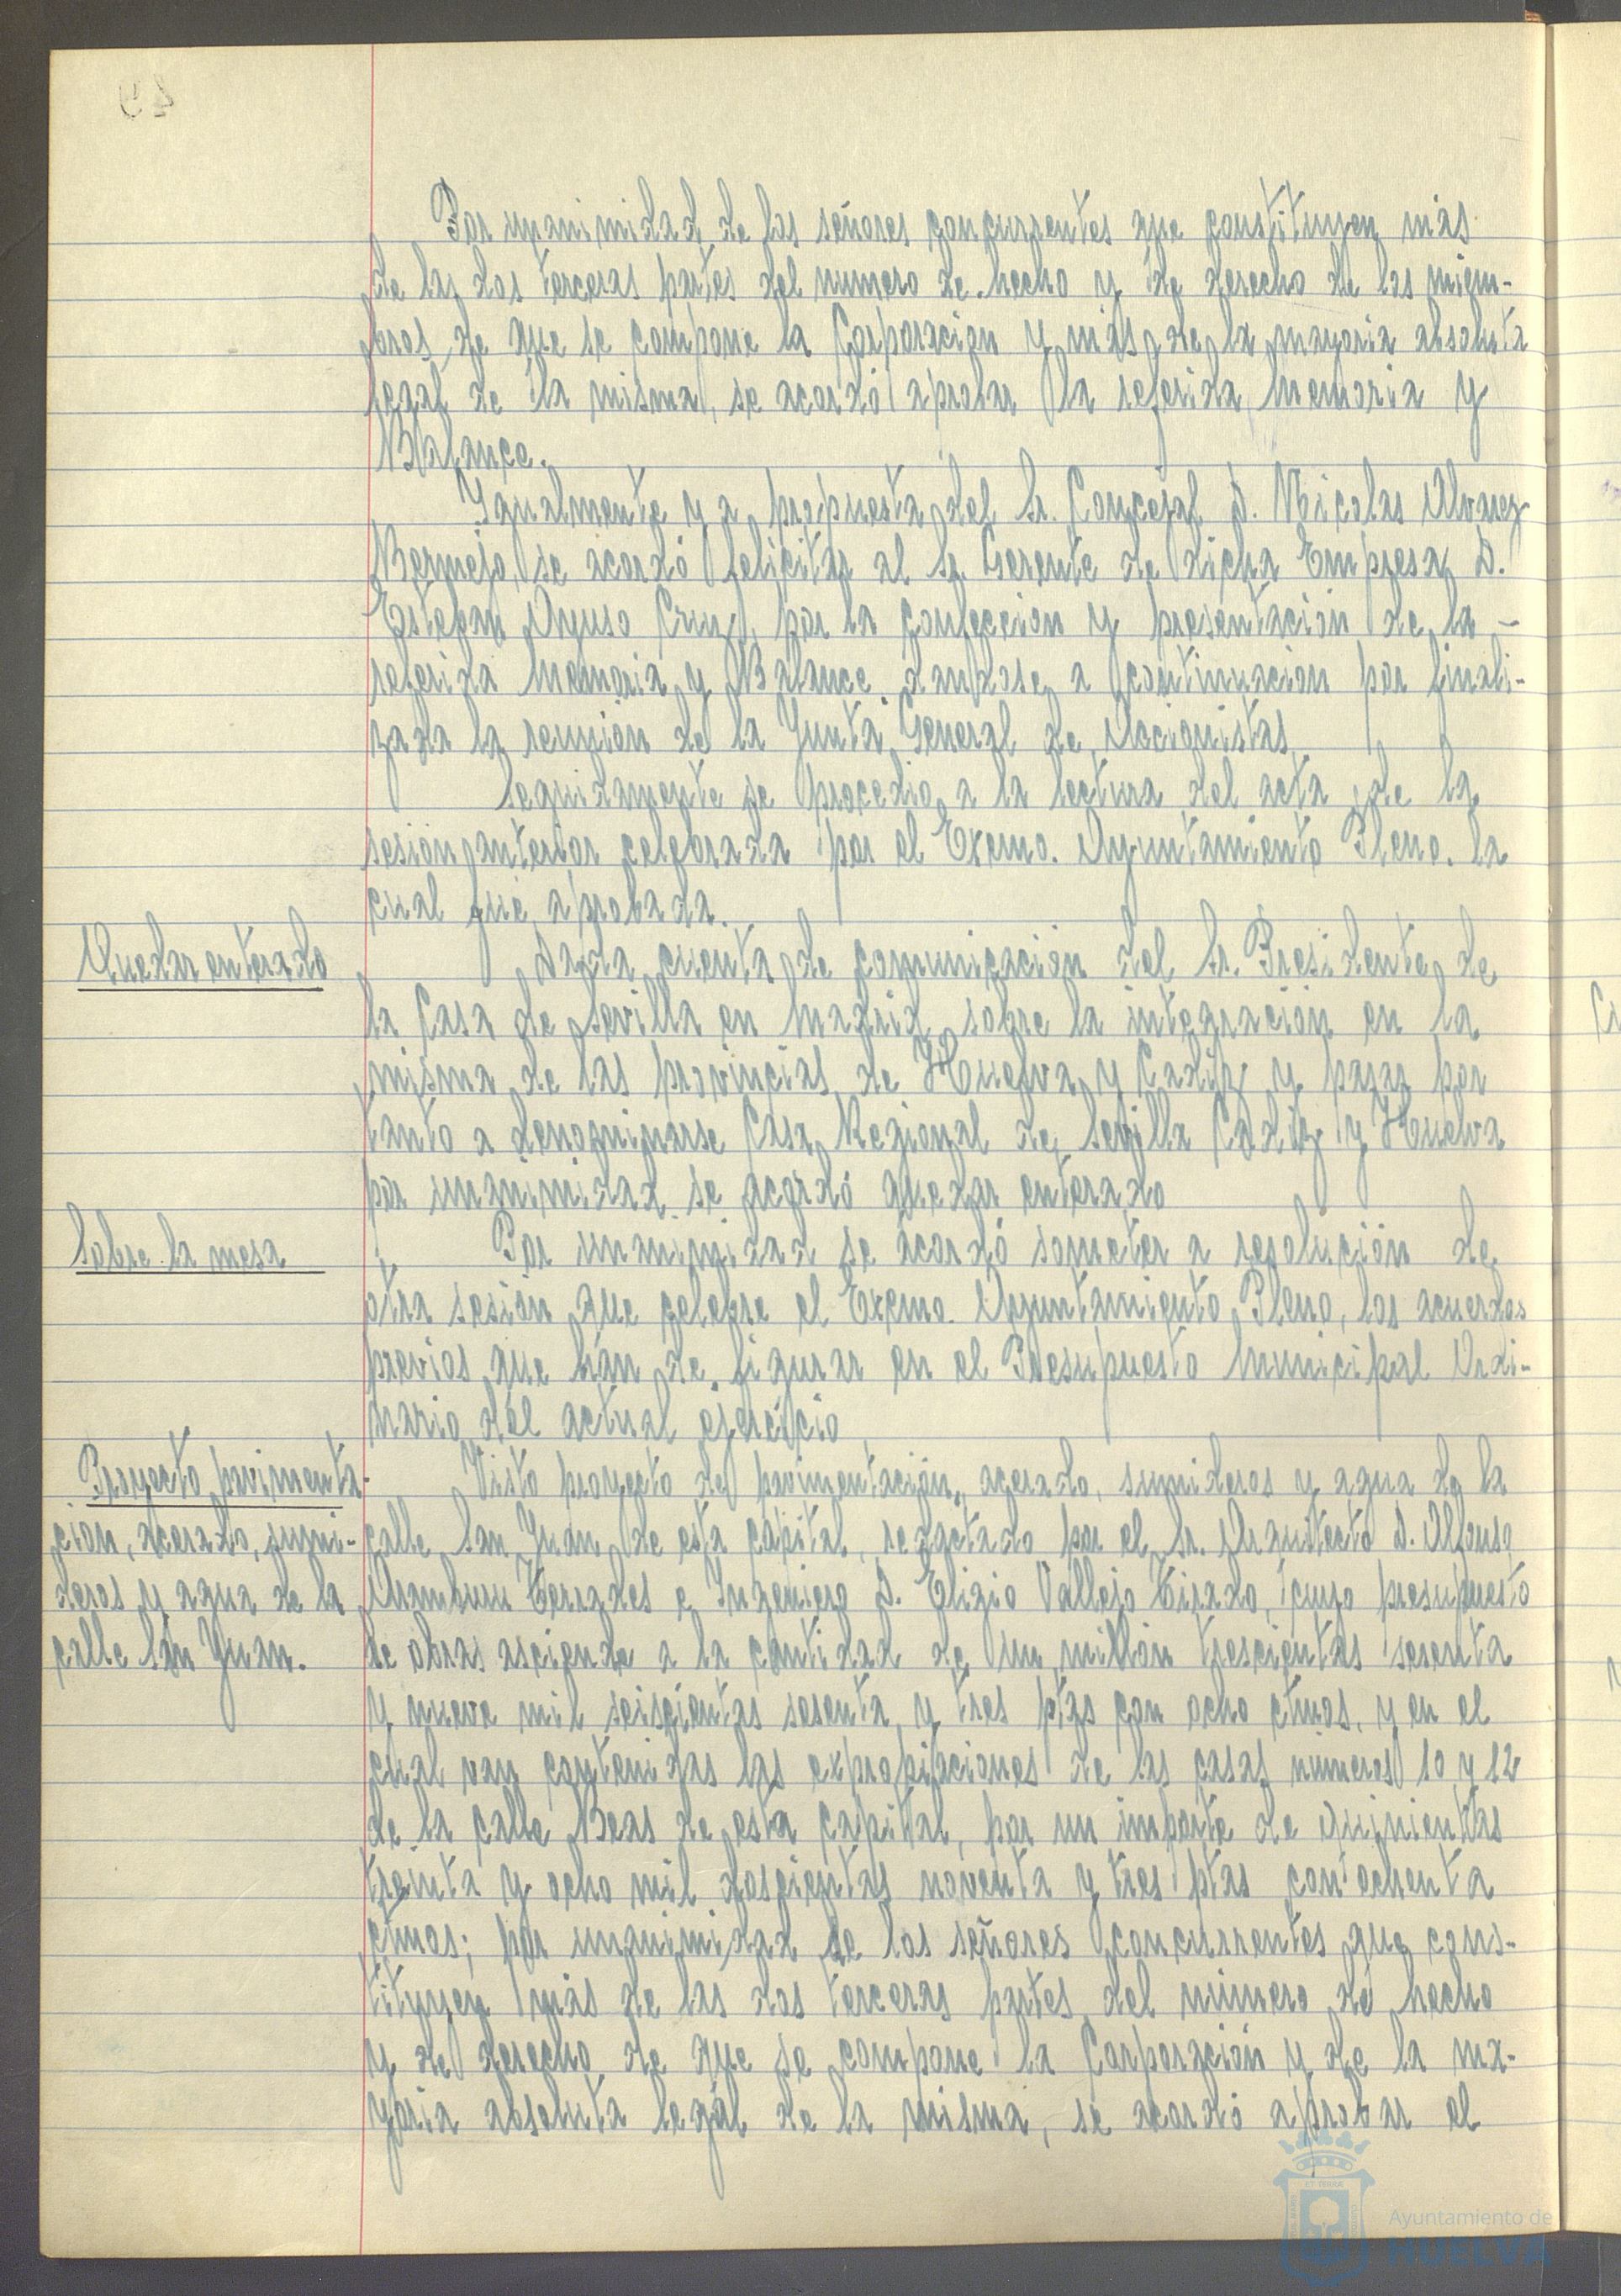 Por unanimidad de los señores concurrentes que constituyen más
de las dos terceras partes del numero de hecho y de derecho de los miem-
bros de que se compone la Corporacion y más de la mayoria absoluta
legal de la misma, se acordó aprobar la referida Memoria y
Balance.
Igualmente y a propuesta del Sr. Concejal D. Nicolas Alvarez
Bermejo, se acordó felicitar al Sr. Gerente de dicha Empresa D.
Esteban Ayuso Cruz, por la confeccion y presentación de la -
referida Memoria y Balance, dandose a continuacion por finali-
zada la reunión de la Junta General de Accionistas
Seguidamente se procedio a la lectura del acta de la
sesion anterior celebrada por el Excmo. Ayuntamiento Pleno. la
cual fue aprobada.
Quedar enterado
Dada cuenta de comunicacion del Sr. Presidente de
la Casa de Sevilla en Madrid, sobre la integracion en la
misma de las provincias de Huelva y Cadiz y pasar por
tanto a denominarse Casa Regional de Sevilla Cadiz y Huelva
por unanimidad se acordó quedar enterado
Sobre la mesa
Por unanimidad se acordó someter a resolución de
otra sesion que celebre el Excmo. Ayuntamiento Pleno, los acuerdos
previos que han de figurar en el Presupuesto Municipal Ordi-
nario del actual ejercicio
Proyecto pavimenta-
cion, acerado, sumi-
deros y agua de la
calle San Juan.
Visto proyecto de pavimentacion, acerado, sumideros y agua de la
calle San Juan de esta capital, redactado por el Sr. Arquitecto D. Alfonso
Aramburu Terrades e Ingeniero D. Eligio Vallejo Tirado, cuyo presupuesto
de obras asciende a la cantidad de un millón trescientas sesenta
y nueve mil seiscientas sesenta y tres ptas con ocho ctmos, y en el
cual van contenidas las expropiaciones de las casas números 10 y 12
de la calle Beas de esta capital, por un importe de quinientas
treinta y ocho mil doscientas noventa y tres ptas con ochenta
ctmos; por unanimidad de los señores concurrentes que cons-
tituyen más de las dos terceras partes del número de hecho
y de derecho de que se compone la Corporación y de la ma-
yoria absoluta legal de la misma, se acordó aprobar el
Ayuntamiento de
HUELVA